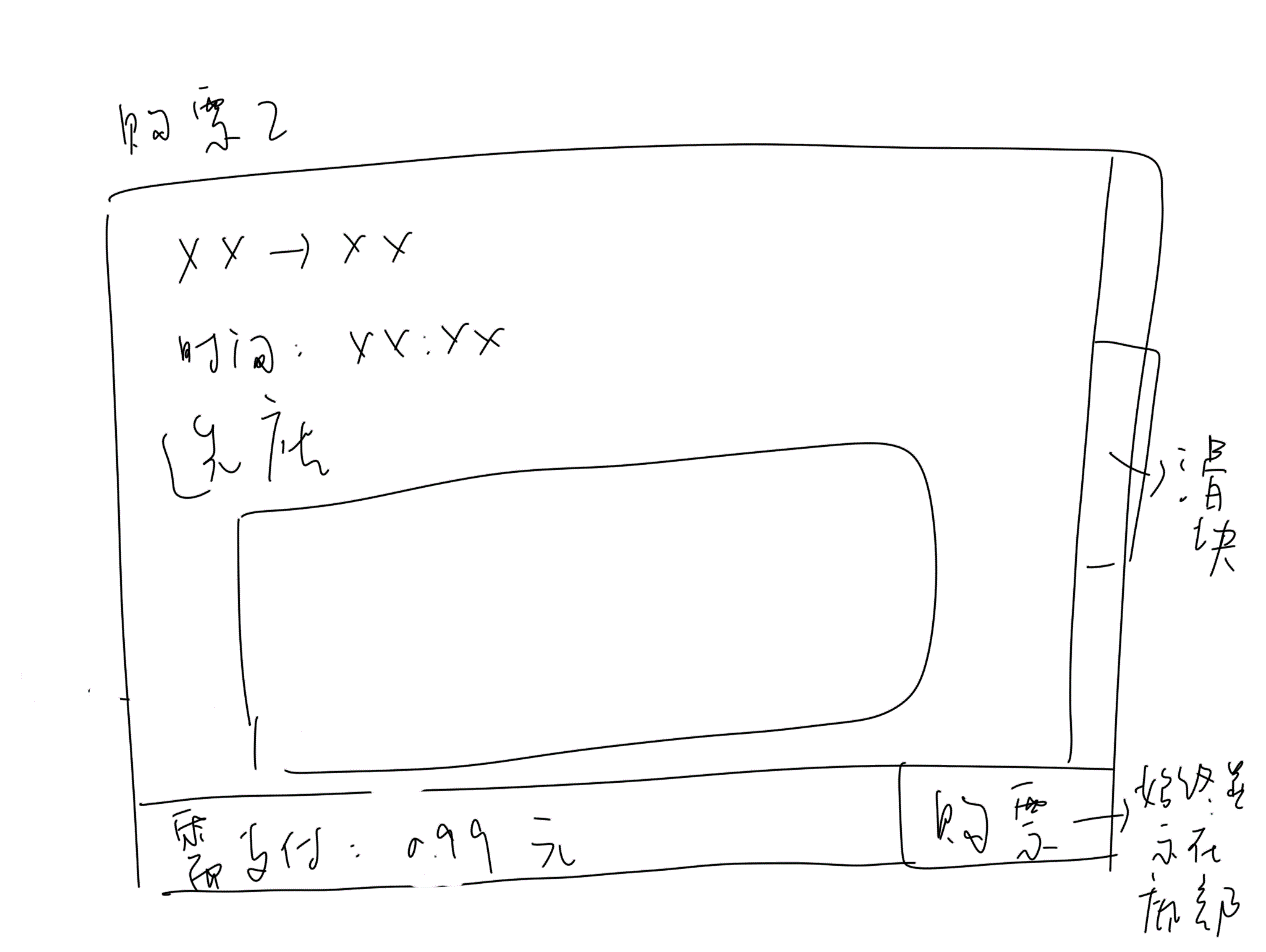 购票2
XX→XX
时间：XX:XX
选座
滑
块
需支付：0.99元
购票
始终显
示在
底部